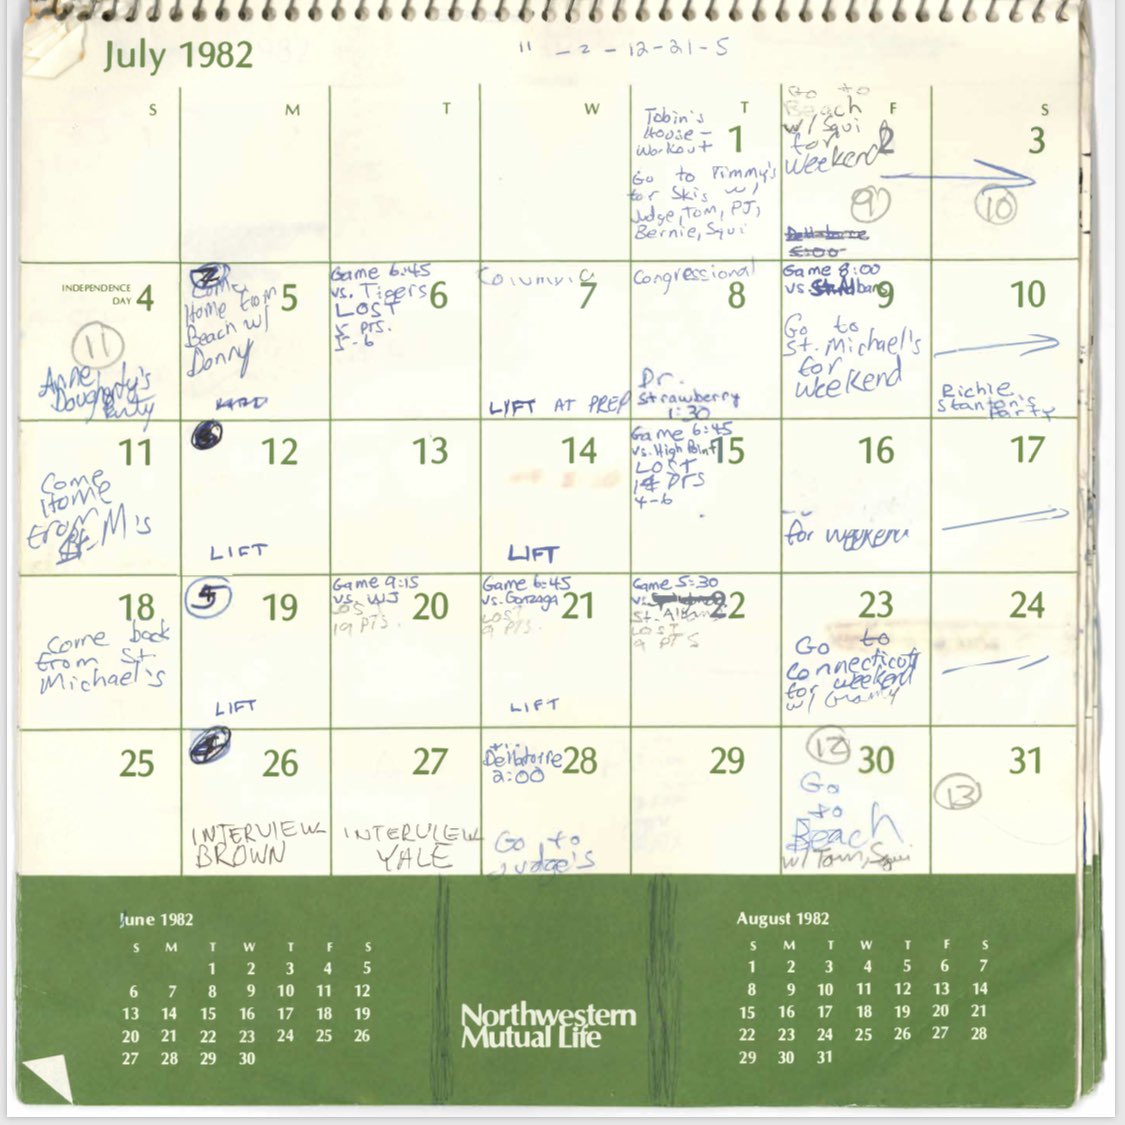 July 1982
11 - 2 - 12 - 21 - 5
S M T W T F S
Tobin's
House -
Workout
1
Go to Timmy's
for Skis w/
Judge, Tom, PJ,
Bernie, Squi
Go to
Beach
w/ Squi
for
Weekend
2
9
5:00
3
10
INDEPENDENCE
DAY 4
11
Anne
Dougherty's
Party
5
Come
Home from
Beach w/
Donny
Game 6:45
vs. Tigers
6
LOST
5 PTS.
5-6
7
LIFT AT PREP
Congressional
8
Dr.
Strawberry
1:30
Game 8:00
vs
9
Go to
St. Michael's
for
Weekend
10
Richie
Stanton's
Party
11
Come
Home
from
M's
12
LIFT
13
14
LIFT
Game 6:45
vs. High Point
15
LOST
PTS
4-6
16
for weekend
17
18
Come back
from St.
Michael's
5
19
LIFT
Game 9:15
vs. WJ
20
LOST
19 PTS.
Game 6:45
vs. Gonzaga
21
LOST
9 PTS.
LIFT
Game 5:30
vs.
22
St. Albans
LOST
9 PTS
23
Go to
Connecticut
for weekend
w/ Grammy
24
25
4
26
INTERVIEW
BROWN
27
INTERVIEW
YALE
28
2:00
Go to
Judge's
29
12
30
Go
to
Beach
w/ Tom, Squi
31
13
June 1982
S M T W T F S
1 2 3 4 5
6 7 8 9 10 11 12
13 14 15 16 17 18 19
20 21 22 23 24 25 26
27 28 29 30
Northwestern
Mutual Life
August 1982
S M T W T F S
1 2 3 4 5 6 7
8 9 10 11 12 13 14
15 16 17 18 19 20 21
22 23 24 25 26 27 28
29 30 31